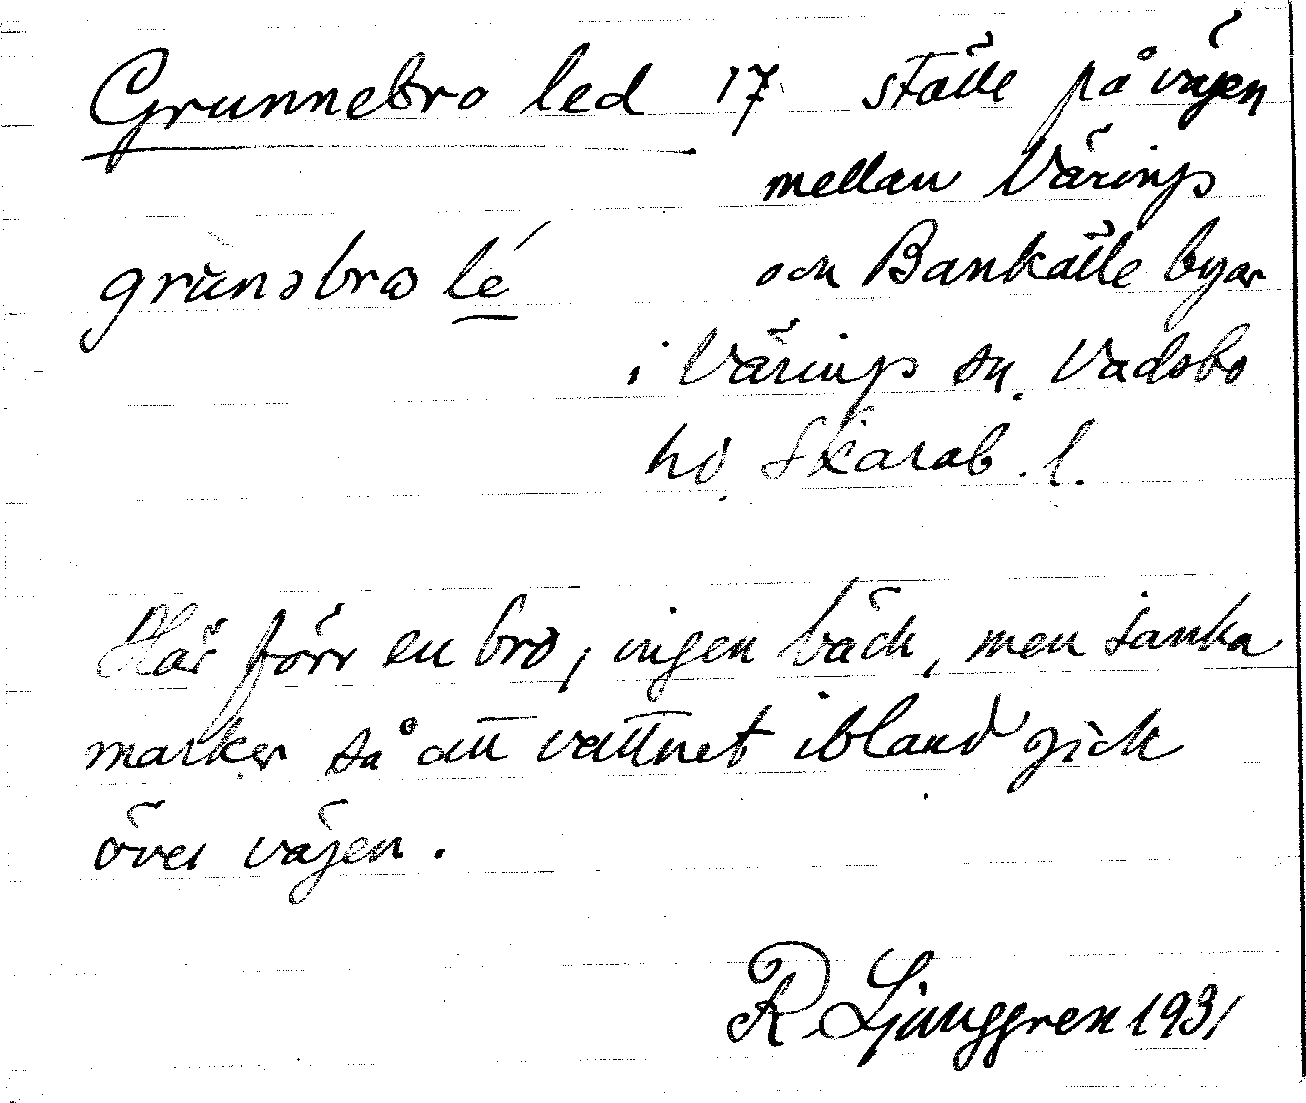 Grunnebro led 17 ställe på vägen
mellan Värings
grunəbrω lé och Bankälle byar
i Värings sn. Vadsbo
hd. Skarab. l.
Här förr en bro, ingen bäck, men sanka
marker så att vattnet ibland gick
över vägen.
R Ljunggren 1931